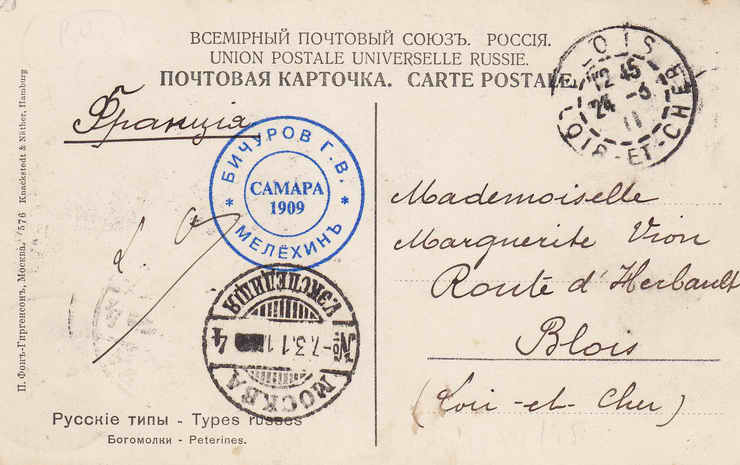 ВСЕМІРНЫЙ ПОЧТОВЫЙ СОЮЗЪ. РОССІЯ.
UNION POSTALE UNIVERSELLE RUSSIE.
ПОЧТОВАЯ КАРТОЧКА. CARTE POSTALE.
Франція
БИЧУРОВ Г.В.
САМАРА
1909
* МЕЛЁХИНЪ *
МОСКВА
4
-7.3.11
ЭКСПЕДИЦІЯ
12 45
24 -3
11
LOIR-ET-CHER
Mademoiselle
Marguerite Vion
Route d'Herbault
Blois
(Loir-et-Cher)
Русскіе типы - Types russes
Богомолки - Peterines.
П. Фонъ-Гиргенсонъ, Москва. 576 Knackstedt & Näther, Hamburg